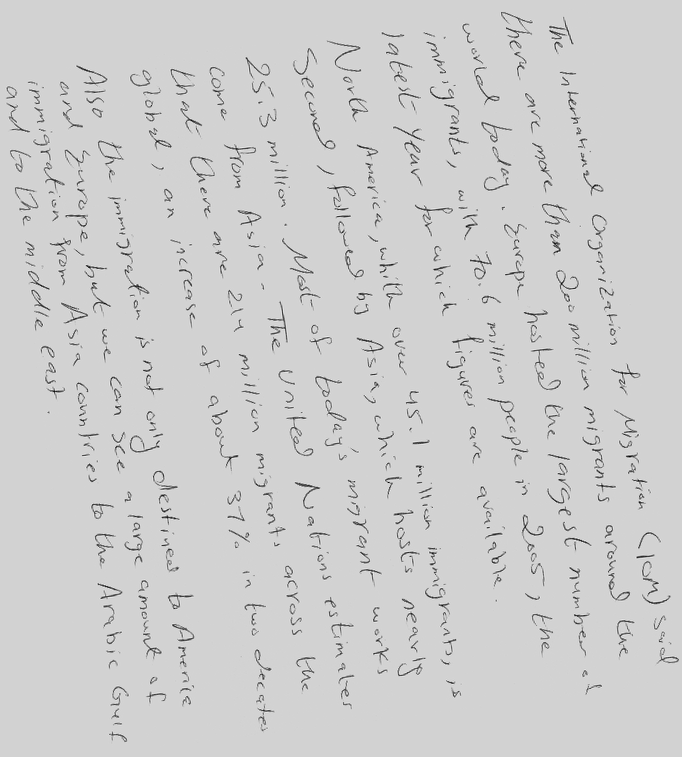 The International Organization for Migration (IOM) said
there are more than 200 million migrants around the
world today. Europe hosted the largest number of
immigrants, with 70.6 million people in 2005, the
latest year for which figures are available.
North America, whith over 45.1 million immigrants, is
Second, followed by Asia, which hosts nearly
25.3 million. Most of today's migrant works
come from Asia - The United Nations estimates
that there are 214 million migrants across the
global, an increase of about 37% in two decates
Also the immigration is not only destined to America
and Europe, but we can see a large amount of
immigration from Asia countries to the Arabic Gulf
and to the middle east.